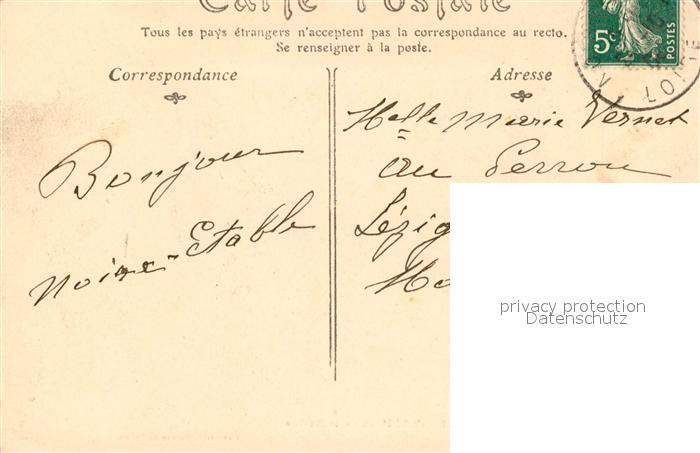 Carte Postale
Tous les pays étrangers n'acceptent pas la correspondance au recto.
Se renseigner à la poste.
Correspondance
Adresse
5c
POSTES
LOIRE
Bonjour
Noire-Etable
Melle Marie Vernet
au Perron
Lézig
privacy protection
Datenschutz